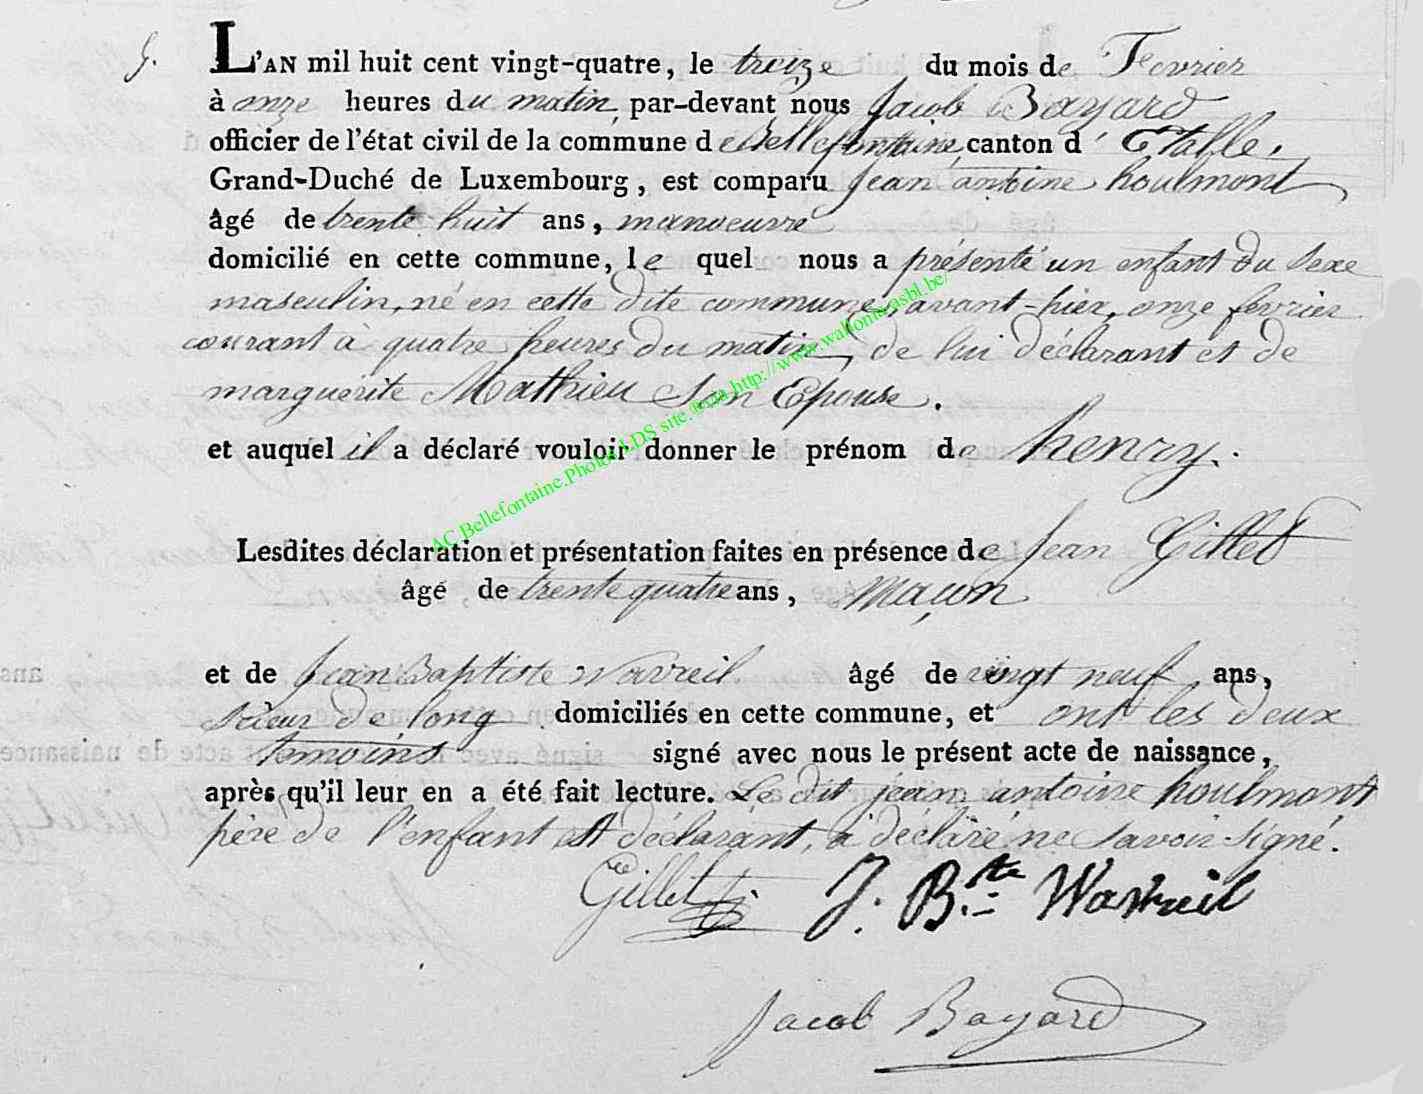 5.
L'AN mil huit cent vingt-quatre, le treize du mois de Fevrier
à onze heures du matin, par-devant nous Jacob Bayard
officier de l'état civil de la commune de Bellefontaine, canton d' Etalle,
Grand-Duché de Luxembourg, est comparu Jean antoine houlmont
âgé de trente huit ans, manoeuvre
domicilié en cette commune, le quel nous a présenté un enfant du sexe
masculin, né en cette dite commune, avant-hier, onze fevrier
courant à quatre heures du matin, de lui déclarant et de
marguerite Mathieu son Epouse.
et auquel il a déclaré vouloir donner le prénom de henry.
AC Bellefontaine.Photos LDS site.©cta.http://www.wallonia.asbl.be/
Lesdites déclaration et présentation faites en présence de Jean Gillet
âgé de trente quatre ans, maçon
et de Jean Baptiste Wavreil âgé de vingt neuf ans,
scieur de long domiciliés en cette commune, et ont les deux
temoins signé avec nous le présent acte de naissance,
après qu'il leur en a été fait lecture. Le dit jean antoine houlmont
père de l'enfant et déclarant, a déclaré ne savoir signé.
Gillet J. B.te Wavreil
Jacob Bayard